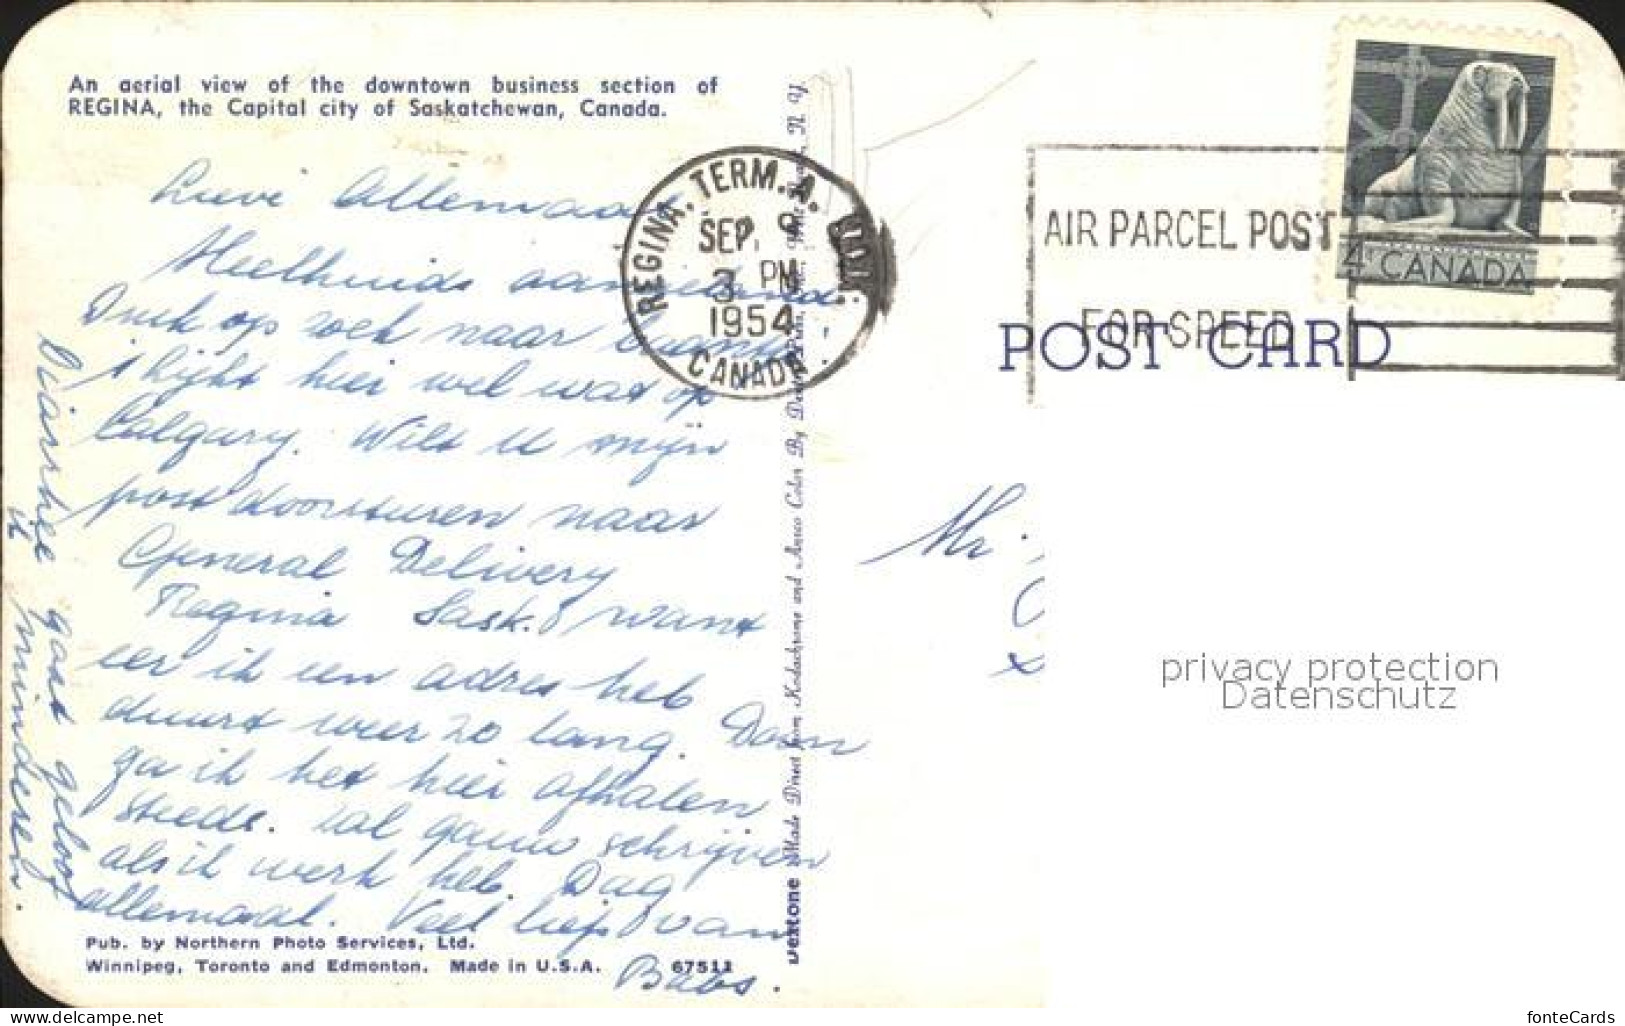 An aerial view of the downtown business section of
REGINA, the Capital city of Saskatchewan, Canada.
Lieve Allemaal
Heelhuids aan
Druk op zoek naar
't lijkt hier wel wat op
Calgary. Wilt U mijn
post doorsturen naar
General Delivery
Regina Sask. want
eer ik een adres heb
duurt weer zo lang. Dan
ga ik het hier afhalen
steeds. Zal gauw schrijven
als ik werk heb. Dag
allemaal. Veel liefs van
Babs.
Diarrhee gaat geloof
ik minderen.
Pub. by Northern Photo Services, Ltd.
Winnipeg, Toronto and Edmonton. Made in U.S.A. 67511
Dextone Made Direct from Kodachrome and Ansco Color By N. Y.
REGINA, TERM. A.
SEP.
3 PM
1954
CANADA
AIR PARCEL POST
FOR SPEED
4¢ CANADA
POST CARD
Mr.
privacy protection
Datenschutz
https://www.delcampe.net
fonteCards